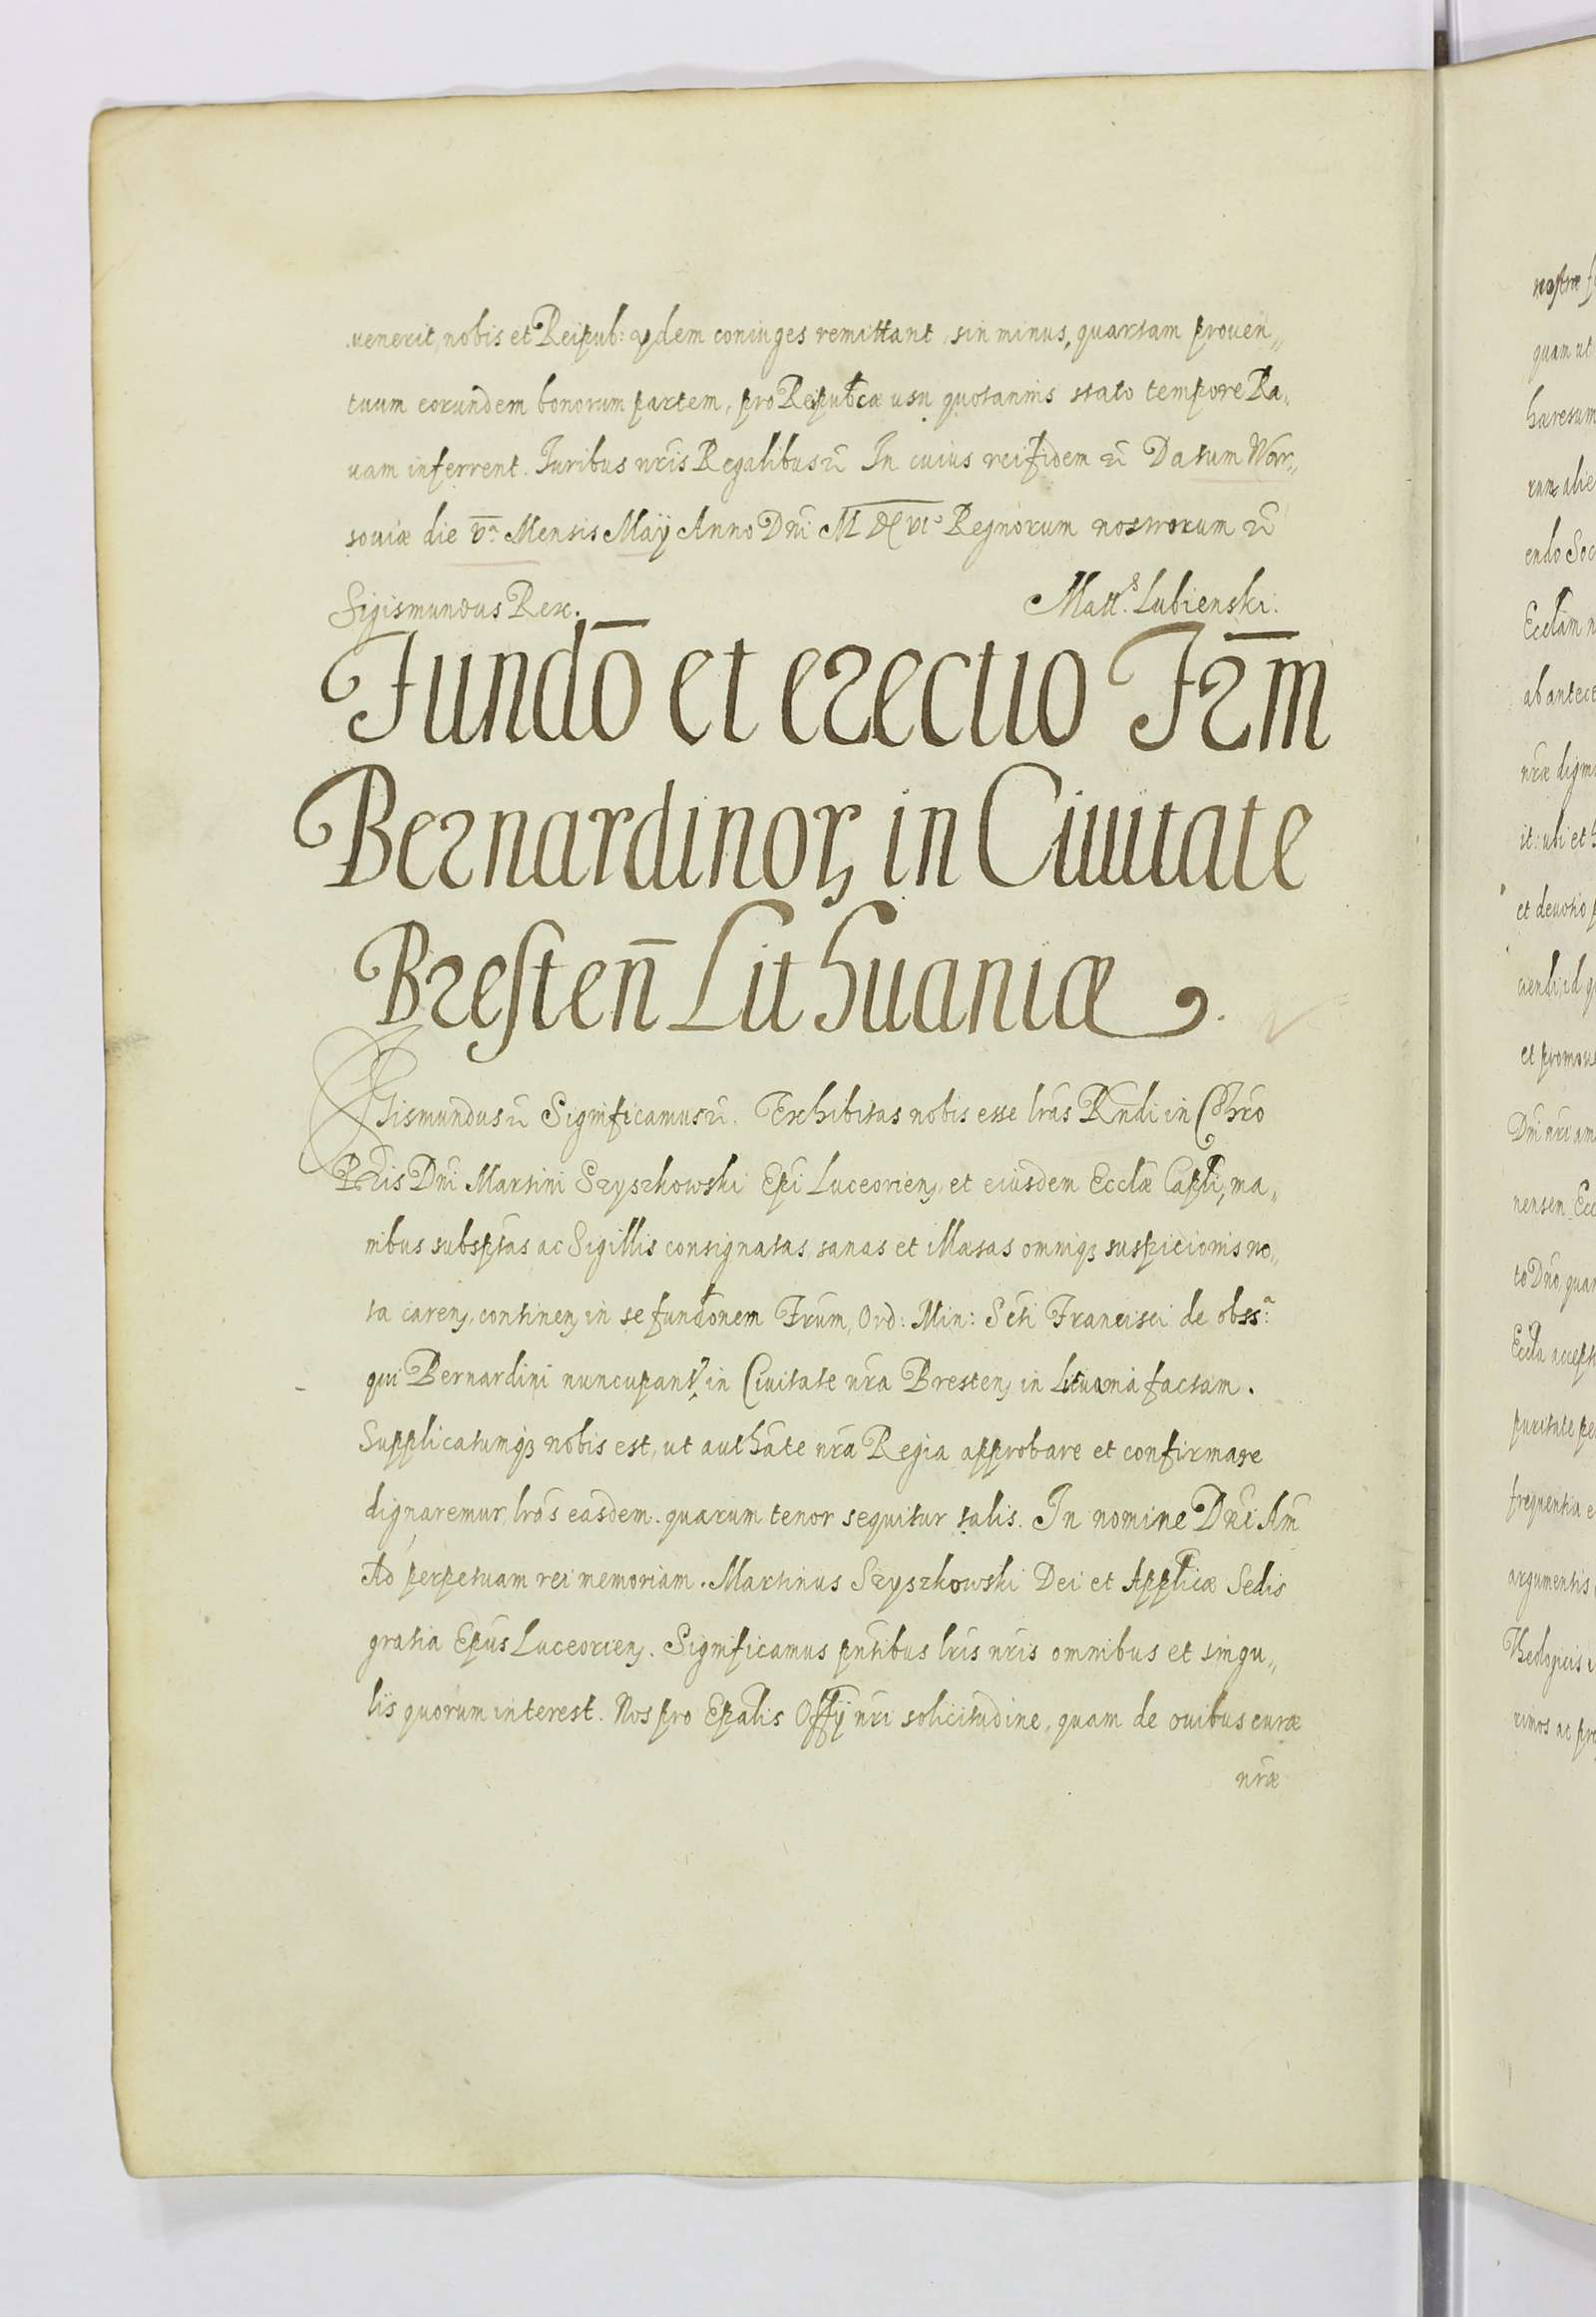 uenerit, nobis et Reipub: ijdem coniuges remittant, sin minus, quartam prouen„
tuum eorundem bonorum partem, pro Reipubcæ usu quotannis stato tempore Ra„
uam inferrent. Juribus nr̃is Regalibus ꝛ̃ In cuius rei fidem ꝛ̃ Datum War„
souiæ die vᵃ Mensis Maÿ Anno Dñi M DC vıº Regnorum nostrorum ꝛ̃
Sigismundus Rex. Matt:ˢ Lubienski.
Fundo͞ et erectio Fr͞m
Bernardinoꝝ in Ciuitate
Bresten̄ Lithuaniæ.
Sigismundus ꝛ̃ Significamus ꝛ̃. Exhibitas nobis esse lr̃as Rñdi in Chr̃o
Pr̃is Dñi Martini Szyszkowski Ep̃i Luceorien, et eiusdem Ecclæ Capli, ma„
nibus subsptas ac Sigillis consignatas, sanas et illæsas omniqꝫ suspicionis no„
ta caren, continen in se fundonem Fr̃um, Ord: Min: Scti Francisci de obssᵃ:
qui Bernardini nuncupant̉ in Ciuitate nr̃a Bresten, in Lituania factam.
Supplicatumqꝫ nobis est, ut authãte nr̃a Regia approbare et confirmare
dignaremur, lr̃as easdem. quarum tenor sequitur talis. In nomine Dñi Am̃
Ad perpetuam rei memoriam. Martinus Szyszkowski Dei et Applicæ Sedis
gratia Ep̃us Luceorien. Significamus pñtibus lr̃is nr̃is omnibus et singu„
lis quorum interest. Nos pro Ep̃alis Offÿ nr̃i solicitudine, quam de ouibus curæ
nr̃æ
nostræ
quam ut
hæresum
endo Soc
Ecclam
ab antece
nr̃æ
it: ubi et
et deuotio
et promou
Dñi nr̃i am
nensen Ecc
to Dño, quam
Eccla accept
puritate pe
frequentia e
argumentis
Theologicis
rimos ac pre